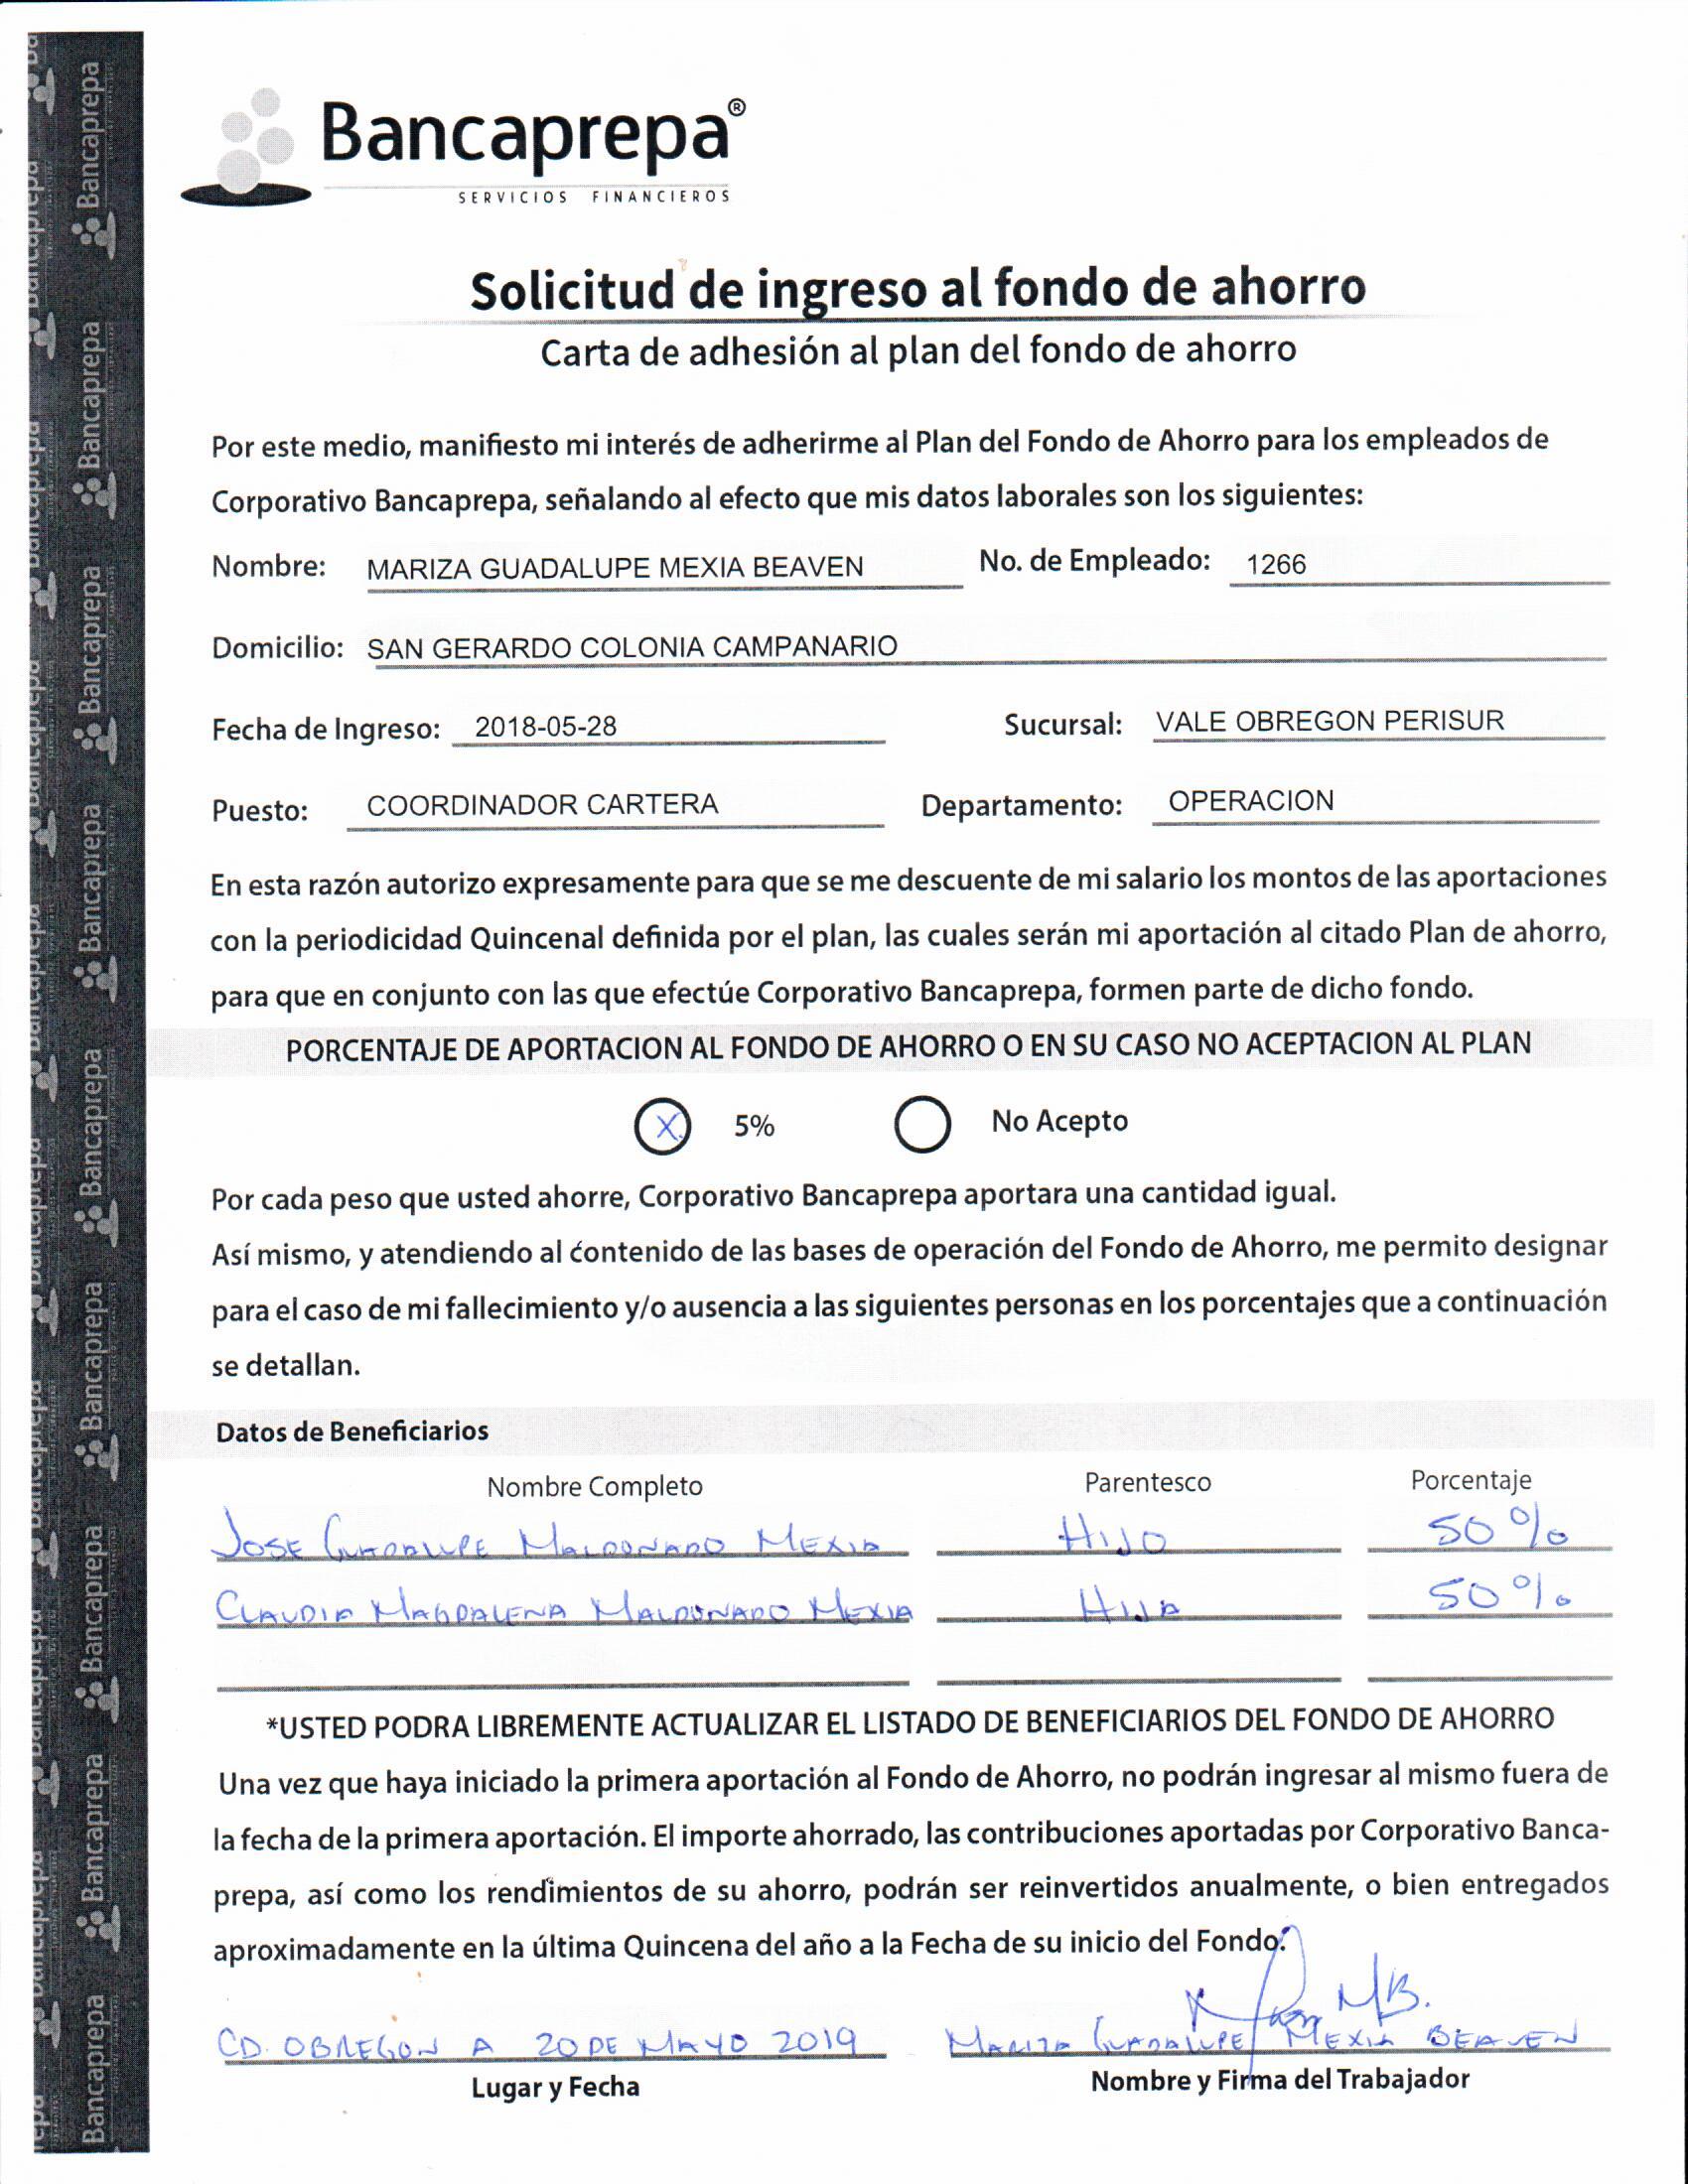 Bancaprepa®
SERVICIOS FINANCIEROS
Solicitud de ingreso al fondo de ahorro
Carta de adhesión al plan del fondo de ahorro
Por este medio, manifiesto mi interés de adherirme al Plan del Fondo de Ahorro para los empleados de
Corporativo Bancaprepa, señalando al efecto que mis datos laborales son los siguientes:
Nombre: MARIZA GUADALUPE MEXIA BEAVEN No. de Empleado: 1266
Domicilio: SAN GERARDO COLONIA CAMPANARIO
Fecha de Ingreso: 2018-05-28 Sucursal: VALE OBREGON PERISUR
Puesto: COORDINADOR CARTERA Departamento: OPERACION
En esta razón autorizo expresamente para que se me descuente de mi salario los montos de las aportaciones
con la periodicidad Quincenal definida por el plan, las cuales serán mi aportación al citado Plan de ahorro,
para que en conjunto con las que efectúe Corporativo Bancaprepa, formen parte de dicho fondo.
PORCENTAJE DE APORTACION AL FONDO DE AHORRO O EN SU CASO NO ACEPTACION AL PLAN
X 5% No Acepto
Por cada peso que usted ahorre, Corporativo Bancaprepa aportara una cantidad igual.
Así mismo, y atendiendo al contenido de las bases de operación del Fondo de Ahorro, me permito designar
para el caso de mi fallecimiento y/o ausencia a las siguientes personas en los porcentajes que a continuación
se detallan.
Datos de Beneficiarios
Nombre Completo Parentesco Porcentaje
JOSE GUADALUPE MALDONADO MEXIA HIJO 50%
CLAUDIA MAGDALENA MALDONADO MEXIA HIJA 50%
*USTED PODRA LIBREMENTE ACTUALIZAR EL LISTADO DE BENEFICIARIOS DEL FONDO DE AHORRO
Una vez que haya iniciado la primera aportación al Fondo de Ahorro, no podrán ingresar al mismo fuera de
la fecha de la primera aportación. El importe ahorrado, las contribuciones aportadas por Corporativo Banca-
prepa, así como los rendimientos de su ahorro, podrán ser reinvertidos anualmente, o bien entregados
aproximadamente en la última Quincena del año a la Fecha de su inicio del Fondo.
CD. OBREGON A 20 DE MAYO 2019 MARIZA GUADALUPE MEXIA BEAVEN
Lugar y Fecha Nombre y Firma del Trabajador